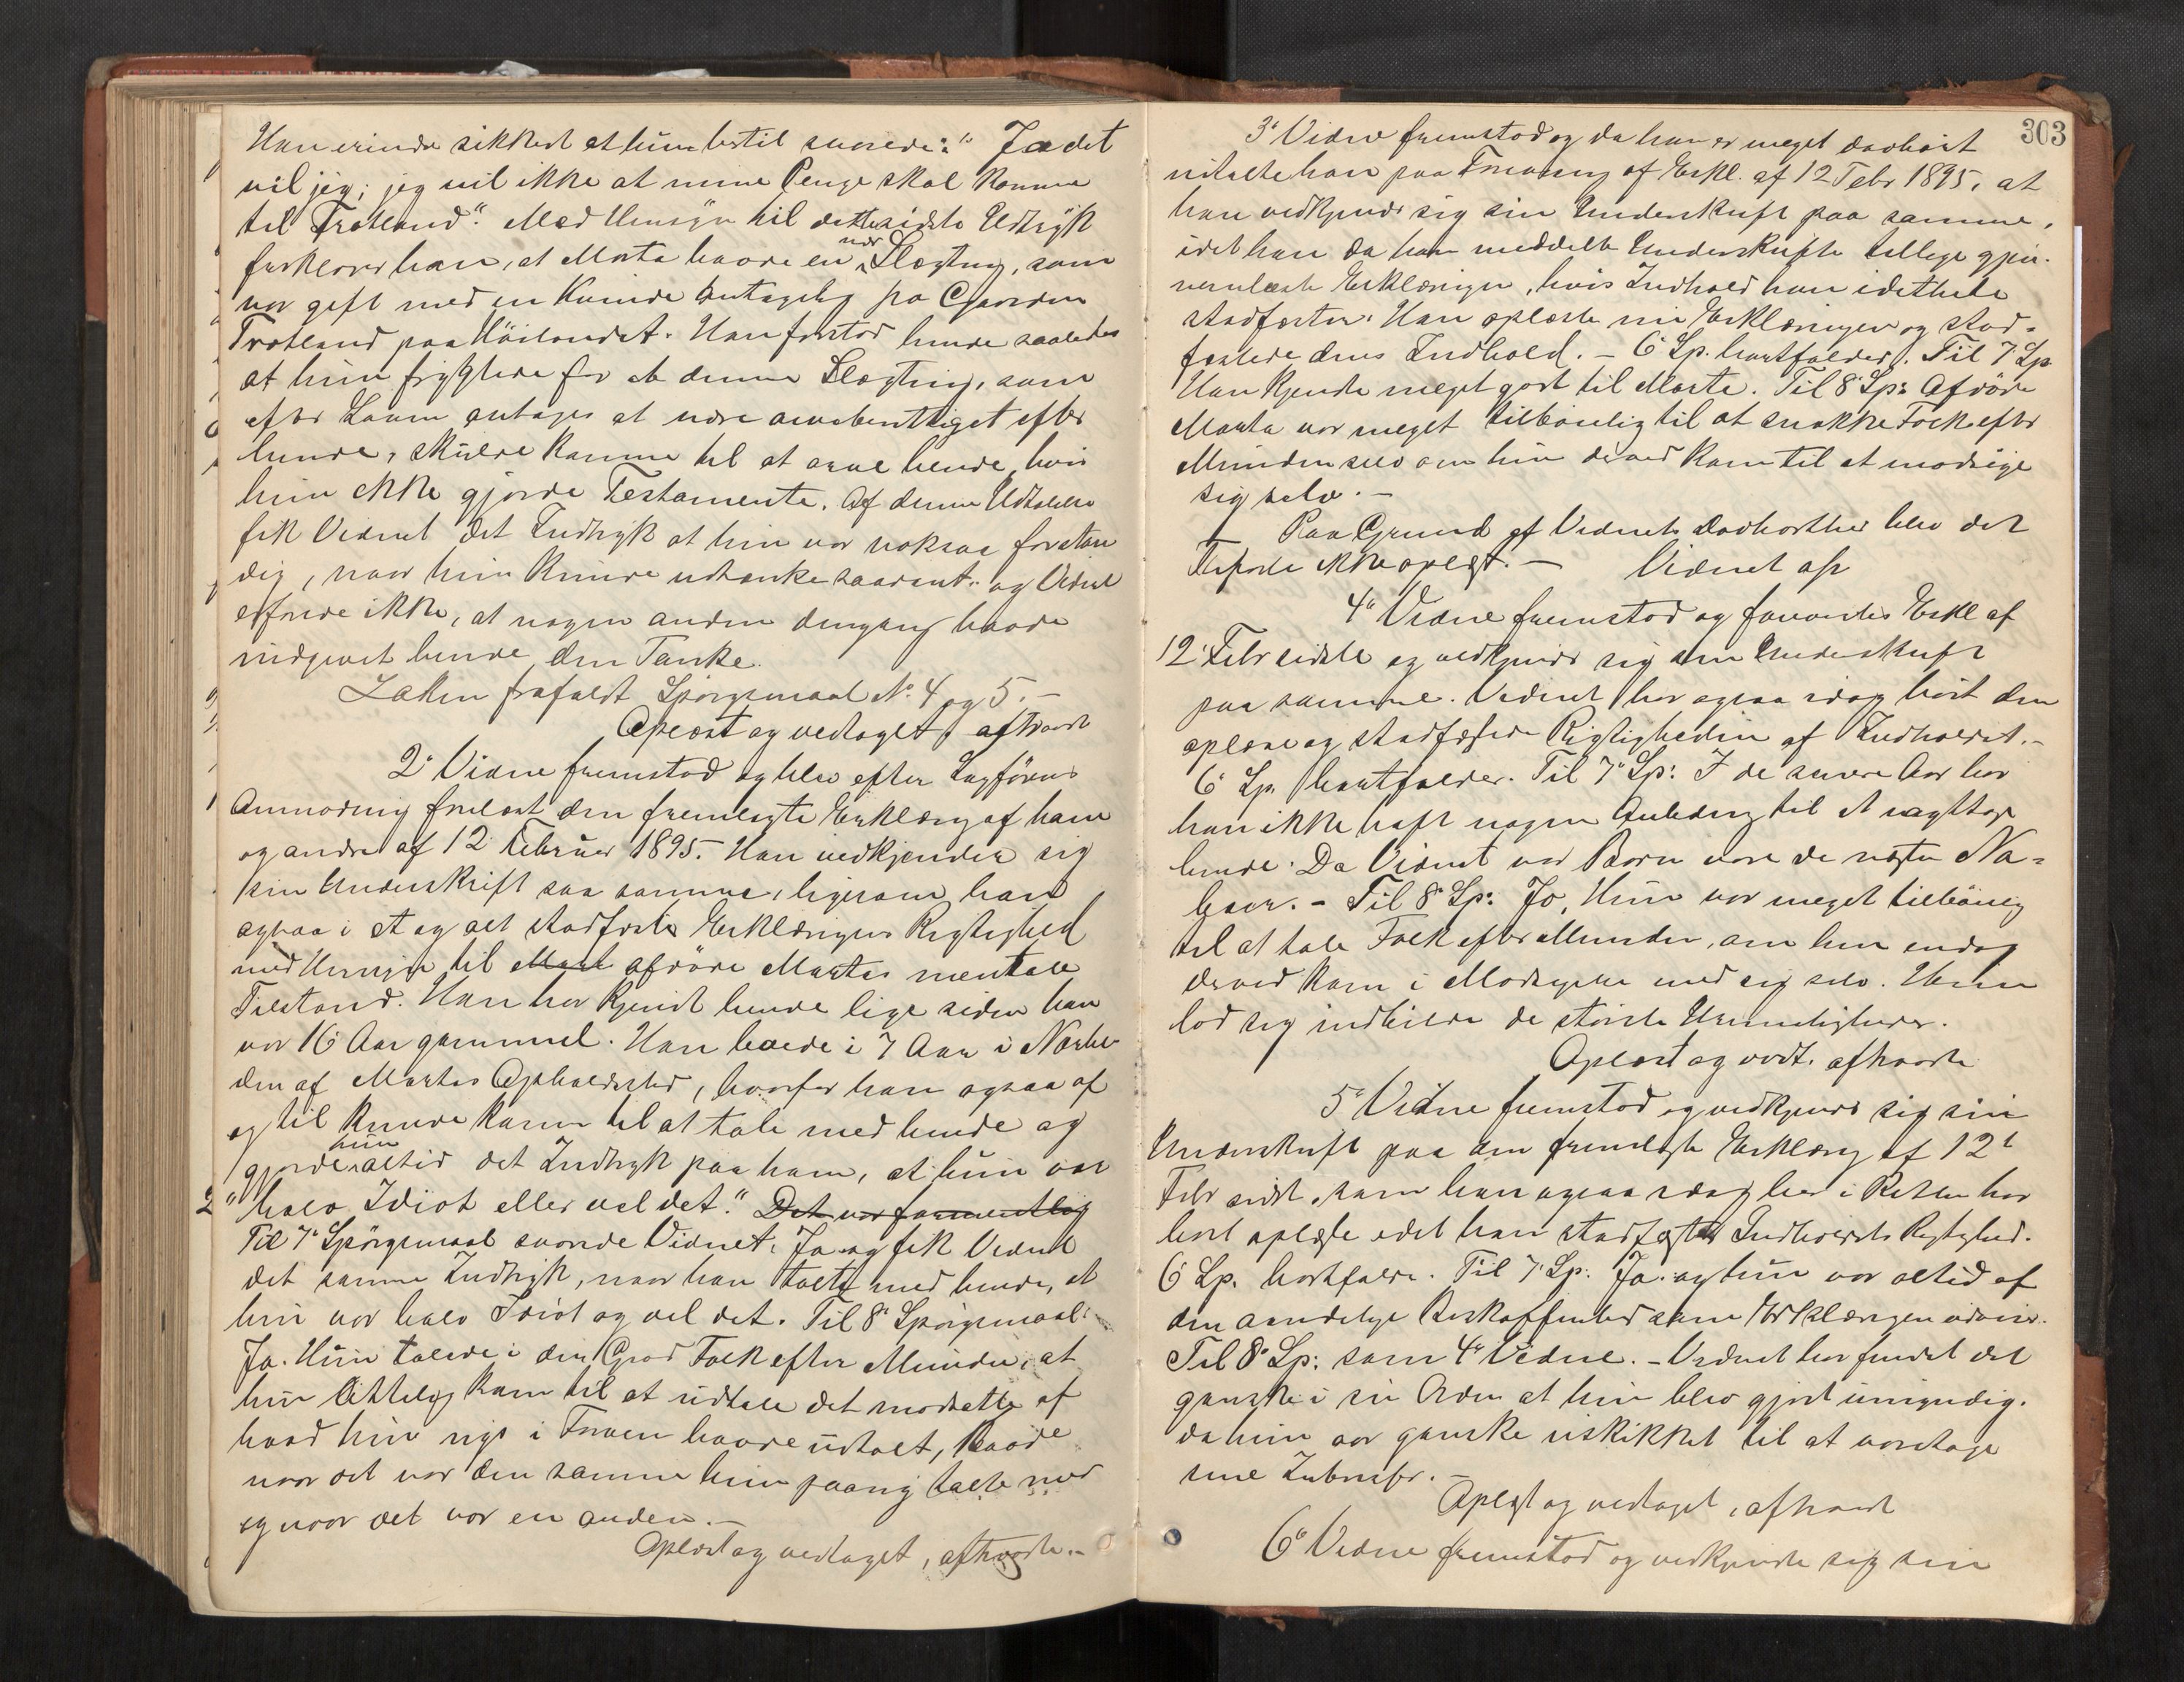 Han erindrer sikkert at hun hertil svarede: "Ja det
vil jeg; jeg vil ikke at mine Penge skal komme
til Trætland". Med Hensyn til dette sidste Udtryk
forklarer han, at Marta havde en nær Slægtning, som
var gift med en Kvinde antagelig fra Gaarden
Trætland paa Höilandet. Han forstod hende saaledes
at hun frygtede for at denne Slægtning, som
efter Loven antages at være arveberettiget efter
hende, skulde komme til at arve hende, hvis
hun ikke gjorde Testamente. Af denne Udtalelse
fik Vidnet det Indtryk at hun var noksaa forstan
dig, naar hun kunde udtænke saadant og Vidnet
erfarede ikke, at nogen anden dengang havde
indgivet hende den Tanke.
Sakfn frafaldt Spörgsmaal No 4 og 5.-
Oplæst og vedtaget, aftraadt
2' Vidne fremstod og blev efter Sagförers
Anmodning forelæst den fremlagte Erklæring af ham
og andre af 12 Februar 1895. Han vedkjender sig
sin Underskrift paa samme, ligesom han
ogsaa i et og alt stadfæster Erklæringens Rigtighed
med Hensyn til Mart afdöde Martas mentale
Tilstand. Han har kjendt hende lige siden han
var 16 Aar gammel. Han boede i 7 Aar i Nærhe-
den af Martas Opholdssted, hvorfor han ogsaa af
og til kunde komme til at tale med hende og
gjorde hun altid det Indtryk paa ham, at hun var
2 "halv Idiot eller vel det." Det var formentlig
Til 7' Spörgsmaal svarede Vidnet: Ja og fik Vidnet
det samme Indtryk, naar han talte med hende, at
hun var halv Idiot og vel det. Til 8' Spörgsmaal:
Ja. Hun talede i den Grad Folk efter Munden, at
hun kom til at udtale det modsatte af
hvad hun nys i Forveien havde udtalt, baade
naar det var den samme hun paany talte med
og naar det var en anden.-
Oplæst og vedtaget, aftraadte.-
303
3' Vidne fremstod og da han er meget dövhört
udtalte han paa Forevisning af Erkl. af 12 Febr 1895, at
han vedkjender sig sin Underskrift paa samme,
idet han da han meddelte Underskriften tillige gjen-
nemlæste Erklæringen, hvis Indhold han i det hele
stadfæster. Han oplæste nu Erklæringen og stad-
fæstede dens Indhold. - 6' Sp. bortfalder. Til 7' Sp
Han kjendte meget godt til Marta. Til 8' Sp: Afdöde
Marta var meget tilböielig til at snakke Folk efter
Munden selv om hun derved kom til at modsige
sig selv.-
Paa Grund af Vidnets Dövhörthed blev det
ikke oplæst.- Vidnet aftr
4' Vidne fremstod og forevistes Erkl af
12' Febr sidstl og vedkjender sig sin Underskrift
paa samme. Vidnet har ogsaa idag hört den
oplæse og stadfæster Rigtigheden af Indholdet.-
6' Sp. bortfalder. Til 7' Sp: I de senere Aar har
han ikke haft nogen Anledning til at iagttage
hende. Da Vidnet var Barn vare de næste Na-
boer. - Til 8' Sp: Ja, Hun var meget tilböielig
til at tale Folk efter Munden, om hun endog
derved kom i Modsigelse med sig selv. Hun
lod sig indbilde de störste Urimeligheder.
Oplæst og vedt. aftraadte
5' Vidne fremstod og vedkjender sig sin
Underskrift paa den fremlagte Erklæring af 12t
Febr sidst, som han ogsaa idag her i Retten har
hört oplæse idet han stadfæster Indholdets Rigtighed.
6' Sp. bortfaldt. Til 7' Sp: Ja. og hun var altid af
den aandelige Beskaffenhed som Erklæringen udviser.
Til 8' Sp: som 4' Vidne. - Vidnet har fundet det
ganske i sin Orden at hun blev gjort umyndig.
da hun var ganske uskikket til at varetage
sine Interesser.-
Oplæst og vedtaget, aftraadt
6' Vidne fremstod og vedkjendte sig sin